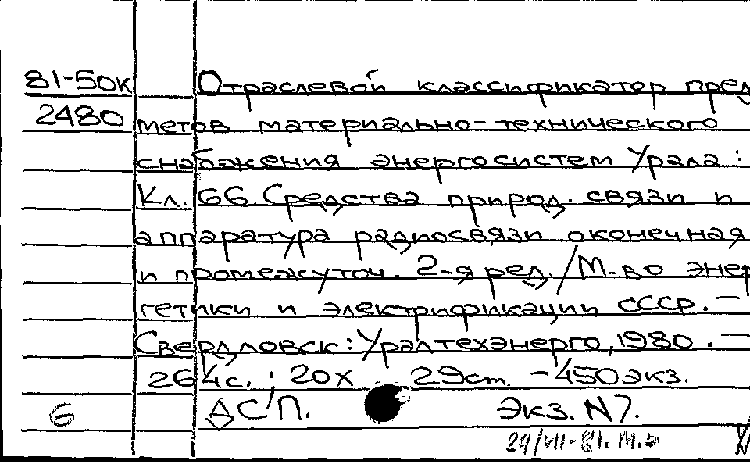 81-50к Отраслевой классификатор пред
2480 метов материально-технического
снабжения энергосистем Урала:
Кл. 66. Средства природ. связи и
аппаратура радиосвязи оконечная
и промежуточ. 2-я ред. / М-во энер
гетики и электрификации СССР. –
Свердловск: Уралтехэнерго, 1980. –
264 с.; 20х 29 см. – 450 экз.
6 ДСП. Экз. N7.